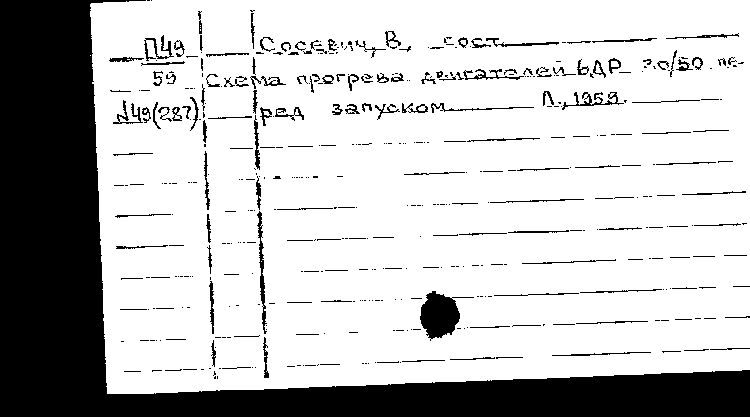 П49 Сосевич, В, сост.
59 Схема прогрева двигателей 6ДР 30/50 пе-
№49(287) ред запуском Л., 1959.